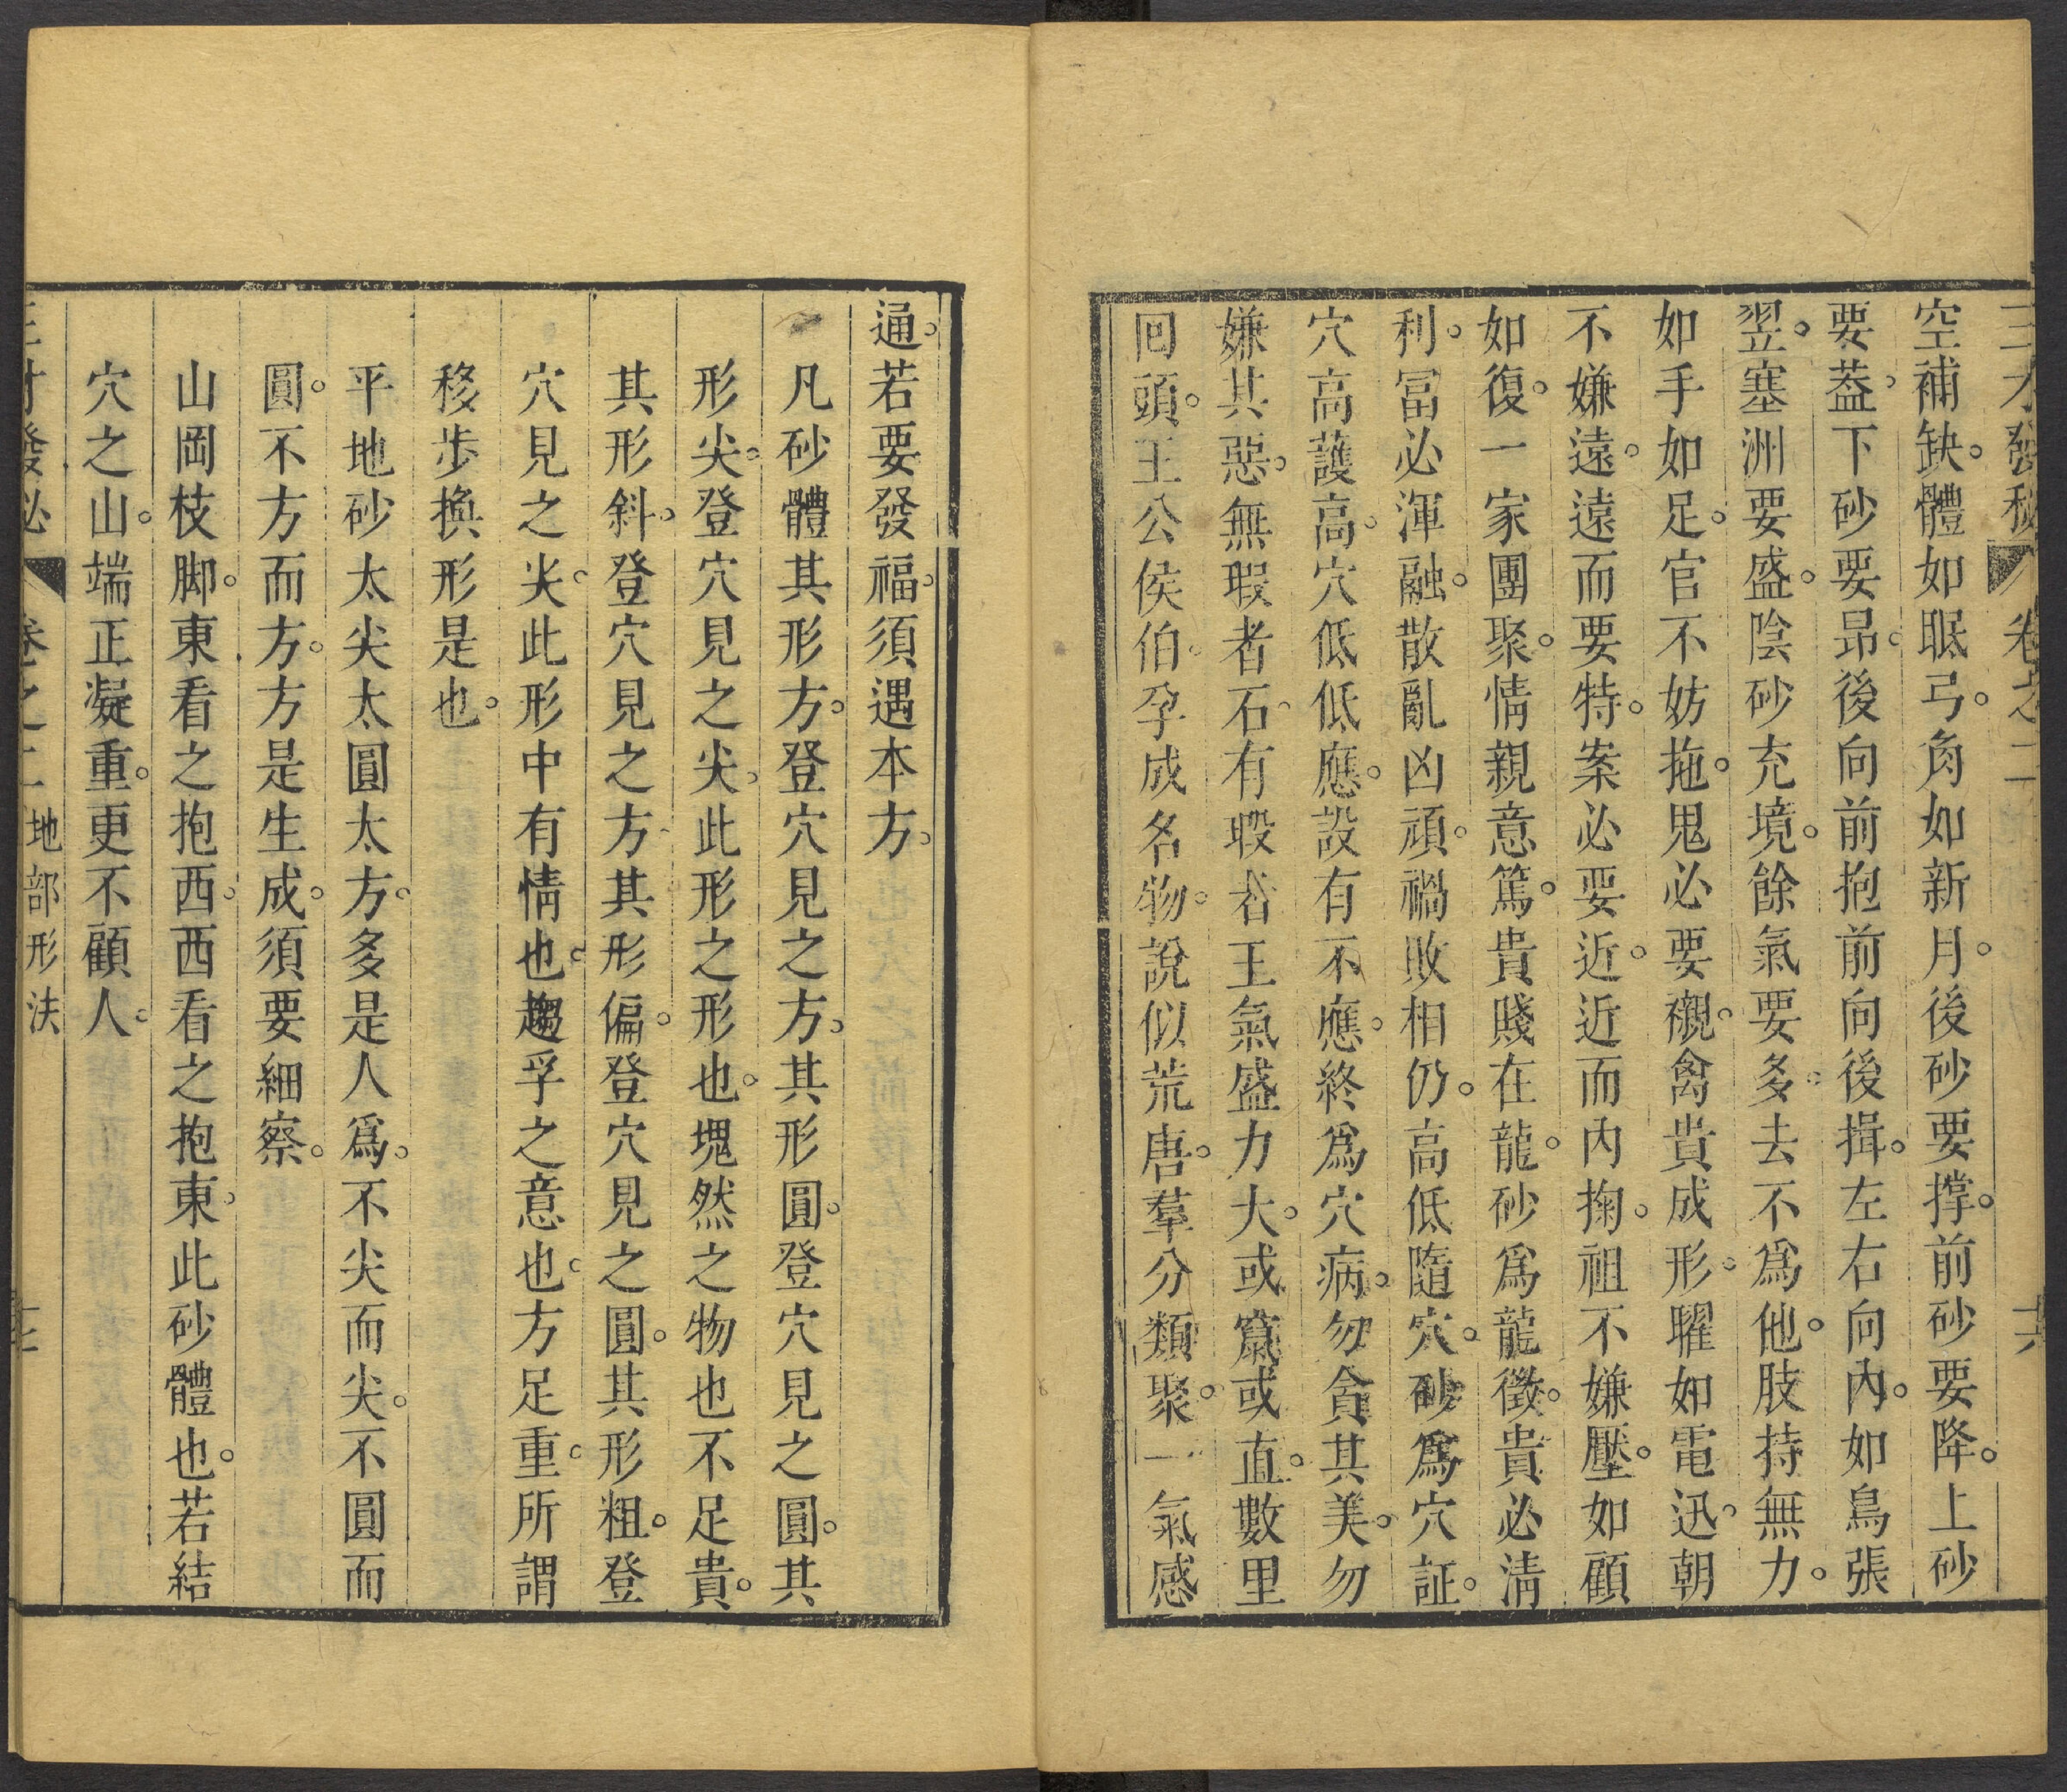 三才發秘 卷之二 十六
空補缺。體如眠弓。角如新月。後砂要撐。前砂要降。上砂
要葢。下砂要昂。後向前抱。前向後揖。左右向內。如鳥張
翌。塞洲要盛。陰砂充境。餘氣要多。去不爲他。肢持無力。
如手如足。官不妨拖。鬼必要襯。禽貴成形。曜如電迅。朝
不嫌遠。遠而要特。案必要近。近而內掬。祖不嫌壓。如顧
如復。一家團聚。情親意篤。貴賤在龍。砂爲龍徵。貴必淸
利。冨必渾融。散亂凶頑。禍敗相仍。高低隨穴。砂爲穴証。
穴高護高。穴低低應。設有不應。終爲穴病。勿貪其美。勿
嫌其惡。無瑕者石。有瑕者王。氣盛力大。或窩或直。數里
回頭。王公侯伯。孕成名物。說似荒唐。羣分類聚。一氣感
通。若要發福。須遇本方。
凡砂體其形方。登穴見之方。其形圓。登穴見之圓。其
形尖。登穴見之尖。此形之形也。塊然之物也不足貴。
其形斜。登穴見之方。其形偏。登穴見之圓。其形粗。登
穴見之尖。此形中有情也。趨孚之意也。方足重。所謂
移步換形是也。
平地砂太尖太圓太方。多是人爲。不尖而尖。不圓而
圓。不方而方。方是生成。須要細察。
山岡枝脚。東看之抱西。西看之抱東。此砂體也。若結
穴之山。端正凝重。更不顧人。
三才發必 卷之二 地部形法 十七